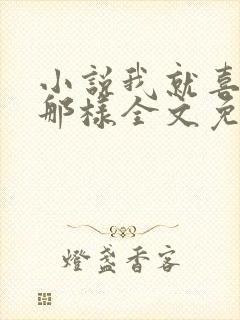 小説我就喜
那樣全文免
燈盞香客